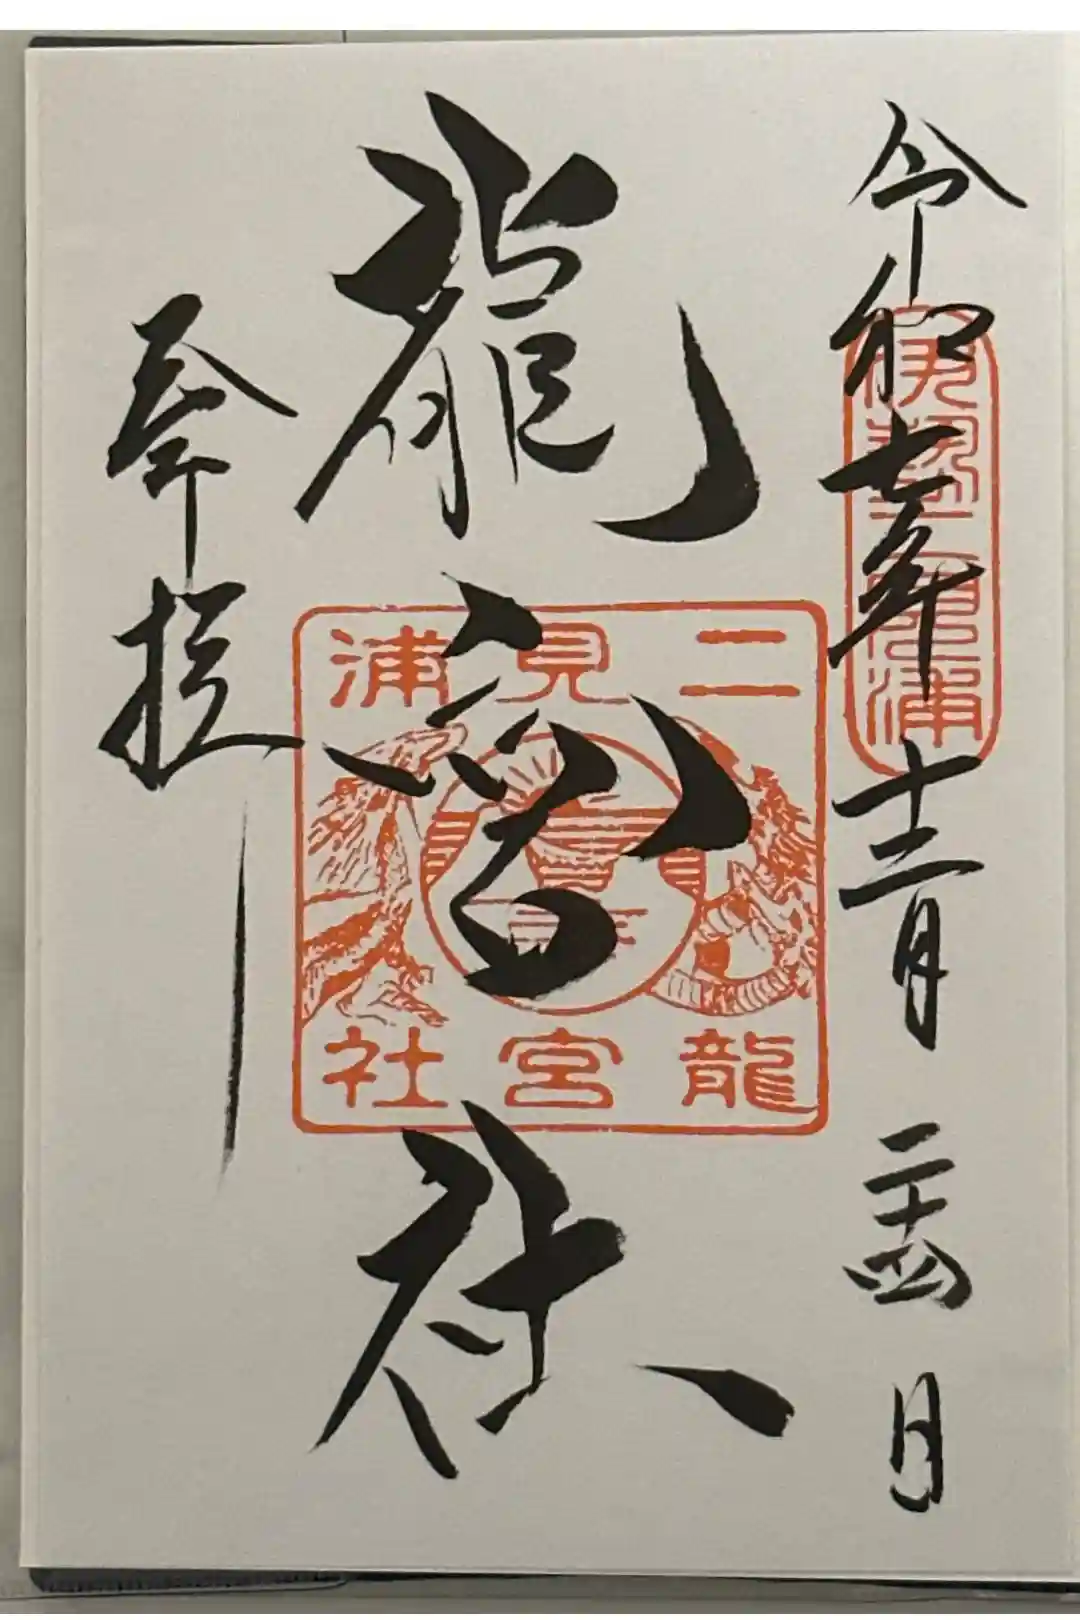 令和七年十二月二十四日
伊勢二見浦
龍宮社
二見浦
龍宮社
奉拝